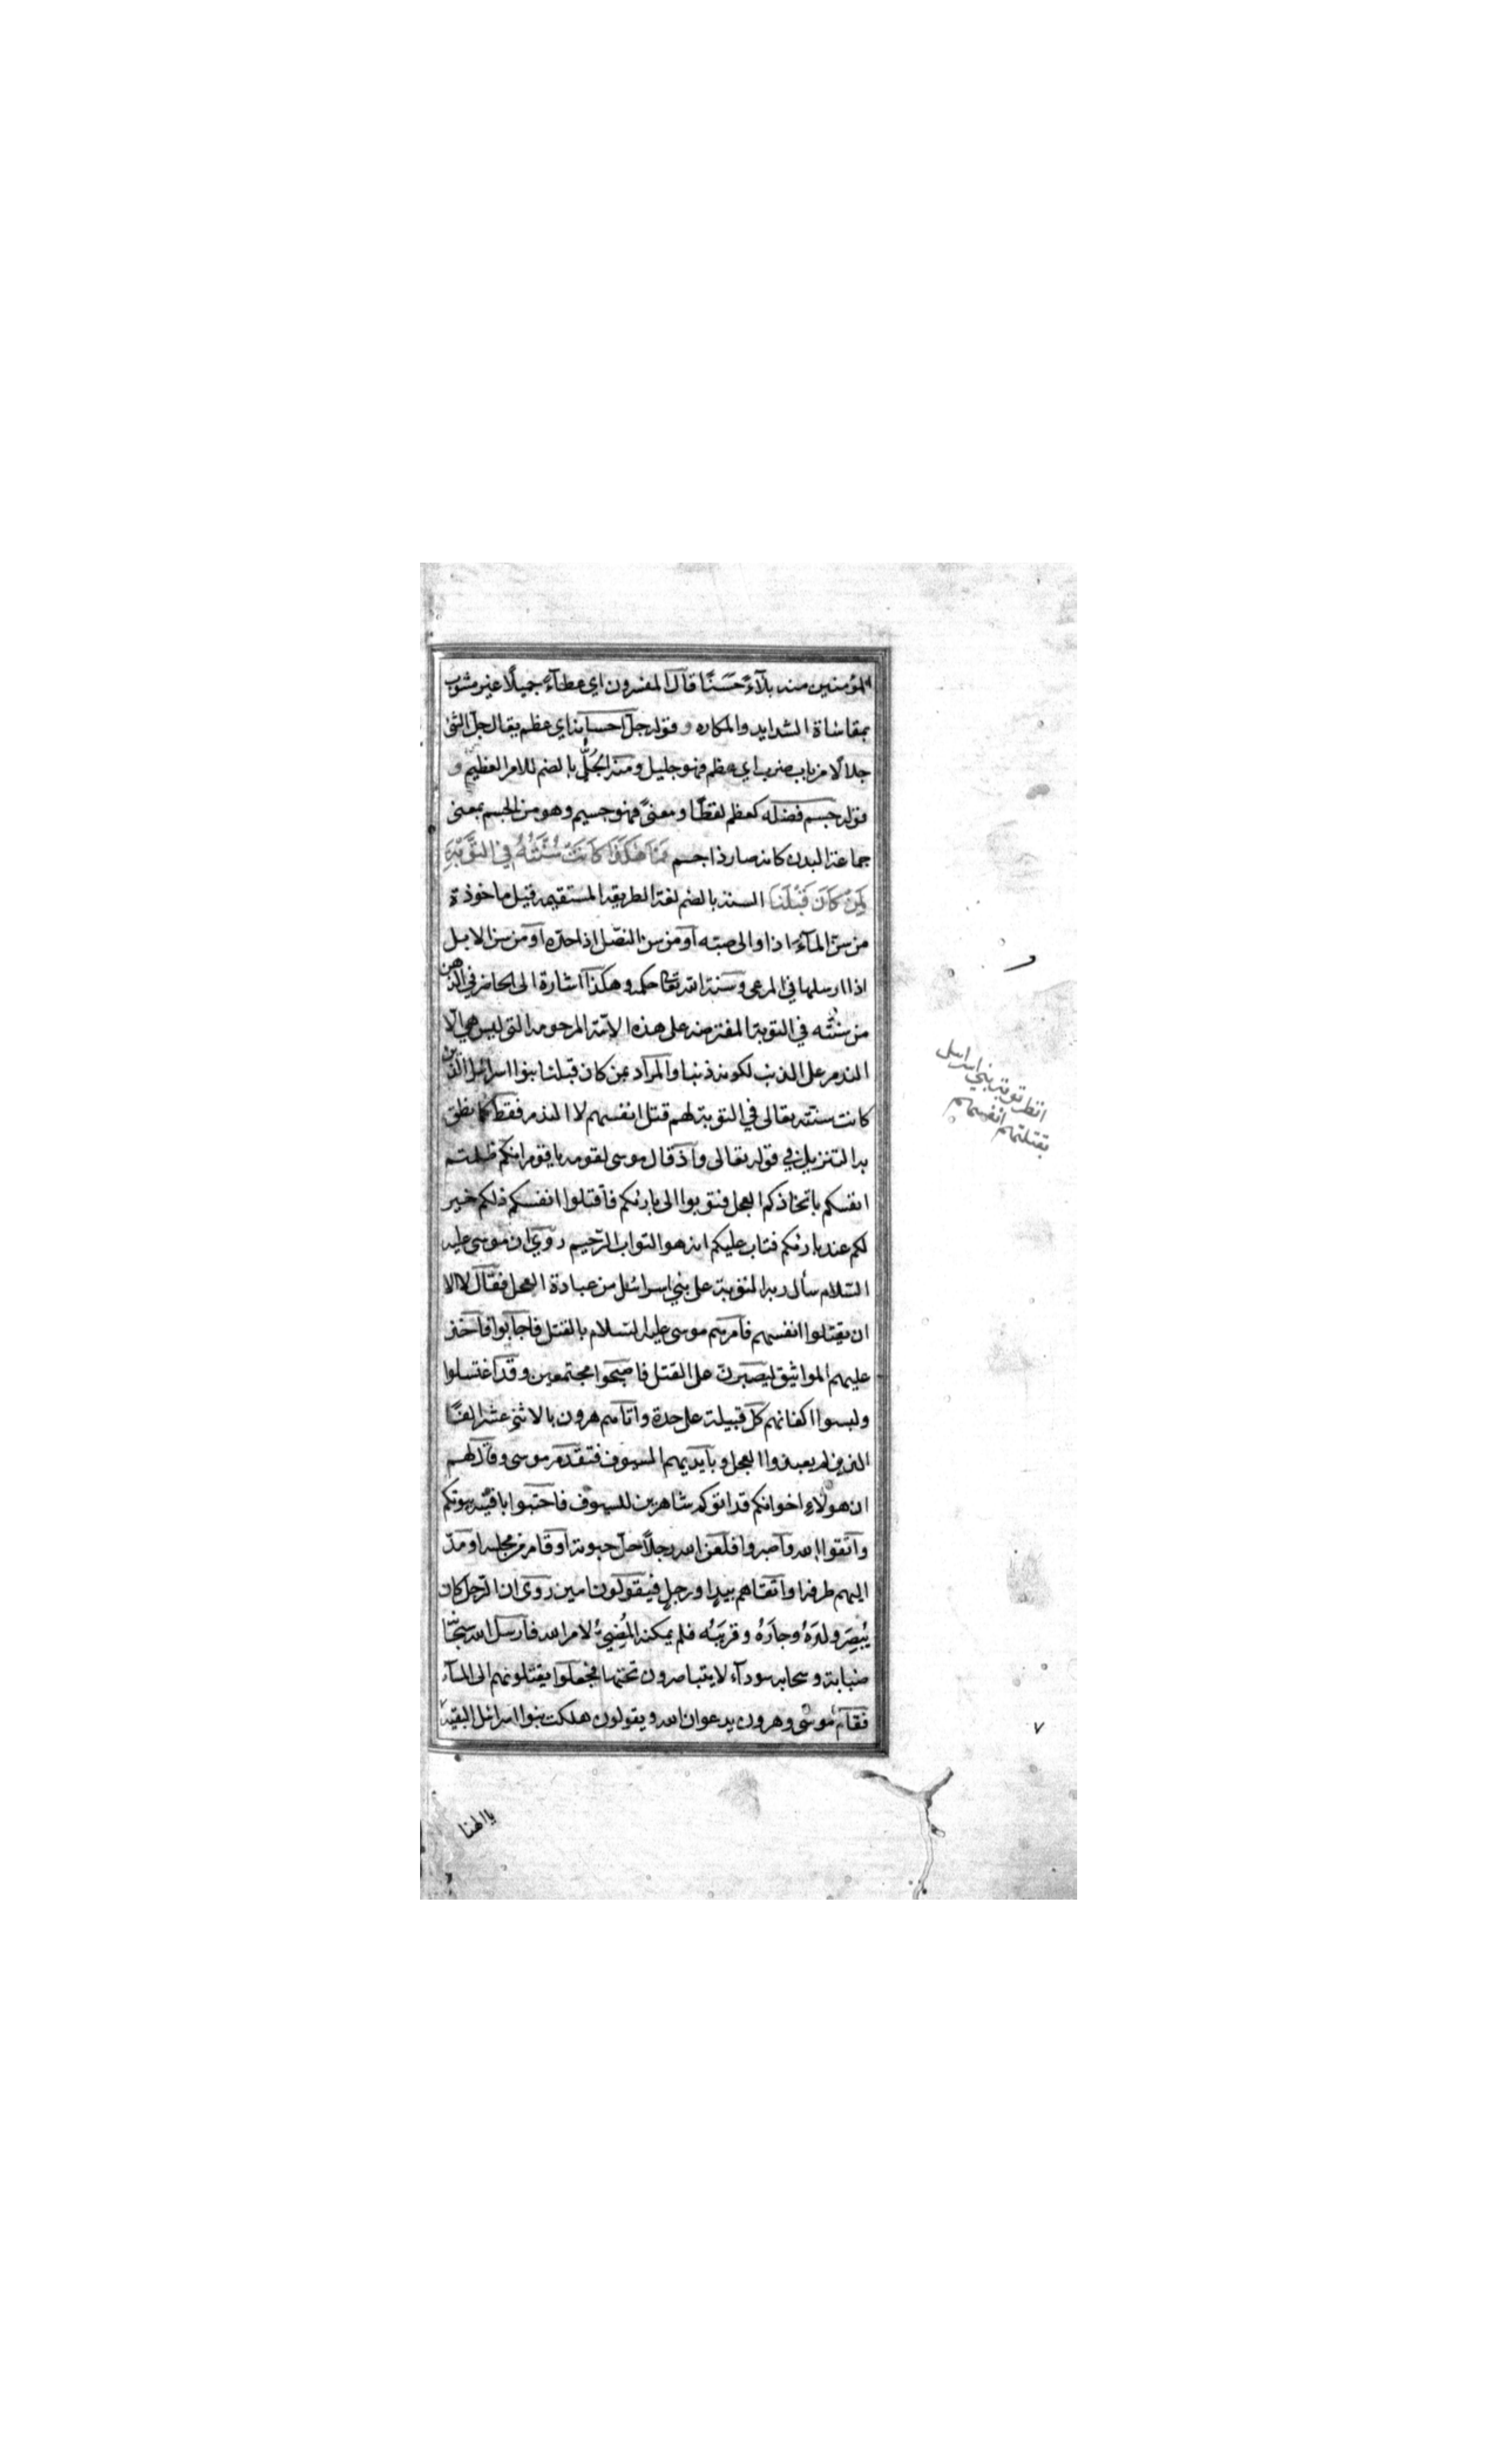 المؤمنين منه بلآءً حَسَنًا قال المفسرون اي عطآءً جميلًا غير مشوب
بمقاساة الشدايد والمكاره وقوله جلّ احسانه اي عظم يقال جلّ الشئ
جلالًا من باب ضرب اي عظم فهو جليل ومنه الجُلّى بالضم للامر العظيم و
قوله جسم فضله كعظم لفظًا ومعنىً فهو جسيم وهو من الجسم بمعنى
جماعة البدن كانه صار ذا جسم فَمَا هٰكَذَا كَانَتْ سُنَّتُهُ فِي التَّوْبَةِ
لِمَنْ كَانَ قَبْلَنَا السنة بالضم لغة الطريقة المستقيمة قيل ماخوذة
من سنّ المآء اذا والى صبّه او من سن النصل اذا حدّه او من سن الابل
اذا ارسلها في المرعى وسنة الله تعالى حكمه وهكذا اشارة الى الحاضر في الذهن
من سنته في التوبة المفترضة على هذه الامّة المرحومة التي ليس هي الّا
الندم على الذنب لكونه ذنبا والمراد بمن كان قبلنا بنوا اسرائيل الذين
كانت سنته تعالى في التوبة لهم قتل انفسهم لا الندم فقط كما نطق
به التنزيل في قوله تعالى واذ قال موسى لقومه يا قوم انكم ظلمتم
انفسكم باتخاذكم العجل فتوبوا الى بارئكم فاقتلوا انفسكم ذلكم خير
لكم عند بارئكم فتاب عليكم انه هو التواب الرّحيم روي ان موسى عليه
السّلام سأل ربه التوبة على بني اسرائيل من عبادة العجل فقال لا الا
ان يقتلوا انفسهم فامرهم موسى عليه السّلام بالقتل فاجابوا فاخذ
عليهم المواثيق ليصبرنّ على القتل فاصبحوا مجتمعين وقد اغتسلوا
ولبسوا اكفانهم كلّ قبيلة على حدة واتاهم هرون بالاثني عشر الفًا
الذين لم يعبدوا العجل وبايديهم السيوف فتقدّم موسى وقال لهم
ان هولاءِ اخوانكم قد اتوكم شاهرين للسيوف فاحتبوا بافنية بيوتكم
واتّقوا الله واصبروا فلعن الله رجلًا حلّ حبوته او قام من مجلسه او مدّ
اليهم طرفه او اتّقاهم بيدٍ او رجلٍ فيقولون امين روي ان الرّجل كان
يُبصِر ولدَهُ وجارَهُ وقريبَه فلم يمكنه المُضيُّ لامر الله فارسل الله
ضبابة وسحابه سودآء لا يتباصرون تحتها فجعلوا يقتلونهم الى المسآء
فقام موسى وهرون يدعوان الله ويقولون هلكت بنوا اسرائيل البقية
انظر توبة بني اسرائيل
بقتلهم انفسهم
٧
يا الهنا